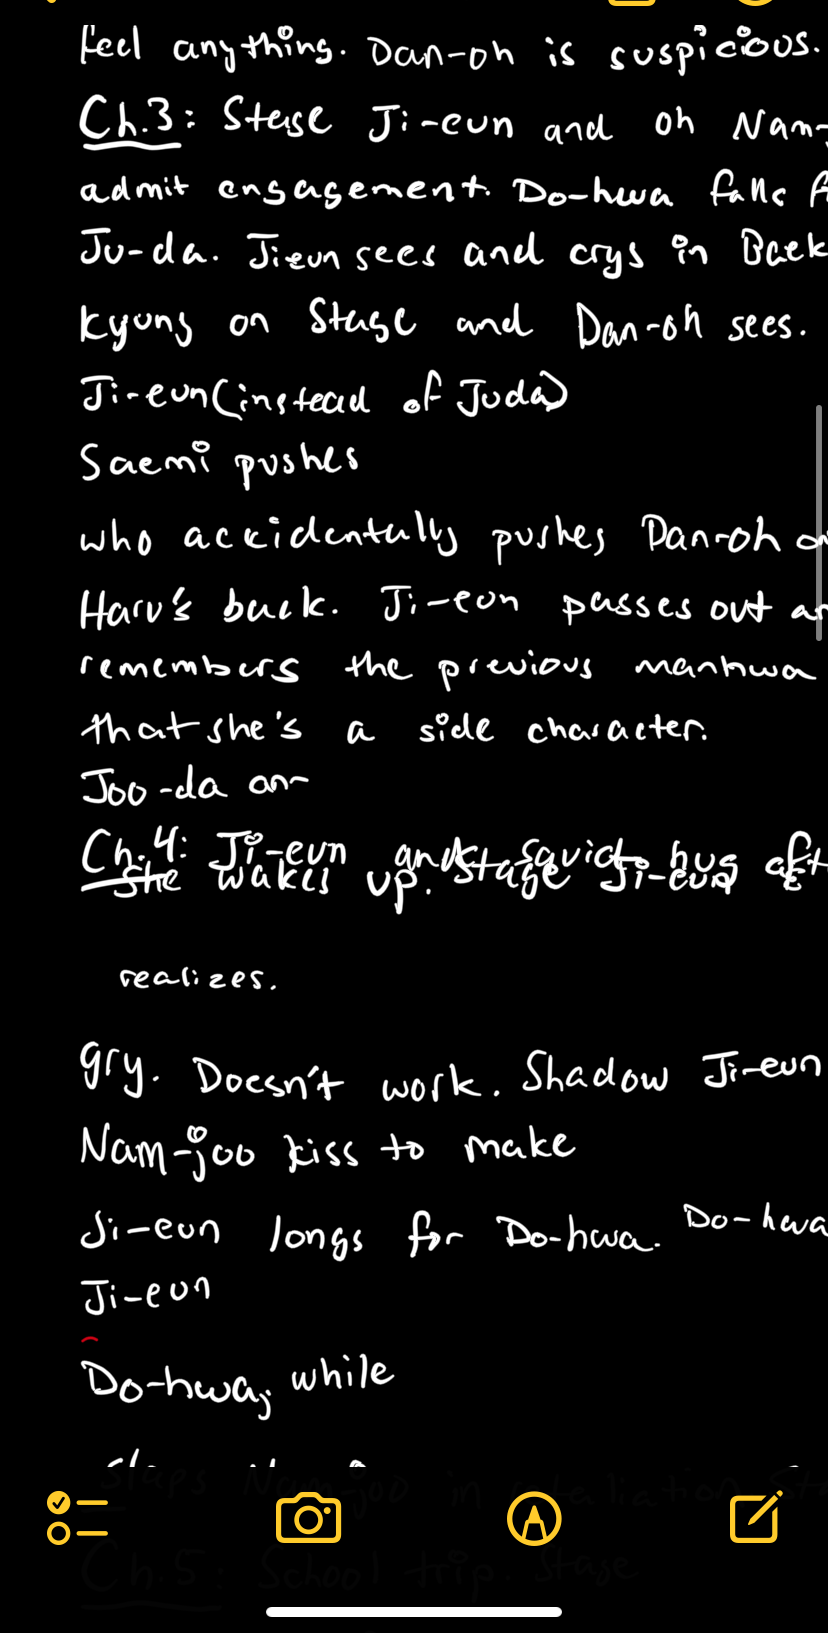 feel anything. Dan-oh is suspicious.
Ch.3: Stage Ji-eun and Oh Nam-
admit engagement. Do-hwa falls f
Ju-da. Jieun sees and crys in Baek
kyung on Stage and Dan-oh sees.
Ji-eun (instead of Juda)
Saemi pushes
who accidentally pushes Dan-oh on
Haru's back. Ji-eun passes out an
remembers the previous manhwa
that she's a side character.
Joo-da an
Ch.4: Ji-eun and squid hug aft
she wakes up. Stage Ji-eun
realizes.
gry. Doesn't work. Shadow Ji-eun
Nam-joo kiss to make
Ji-eun longs for Do-hwa. Do-hwa
Ji-eun
Do-hwa, while
slaps Nam-joo in retaliation. St
Ch.5: School trip. Stage